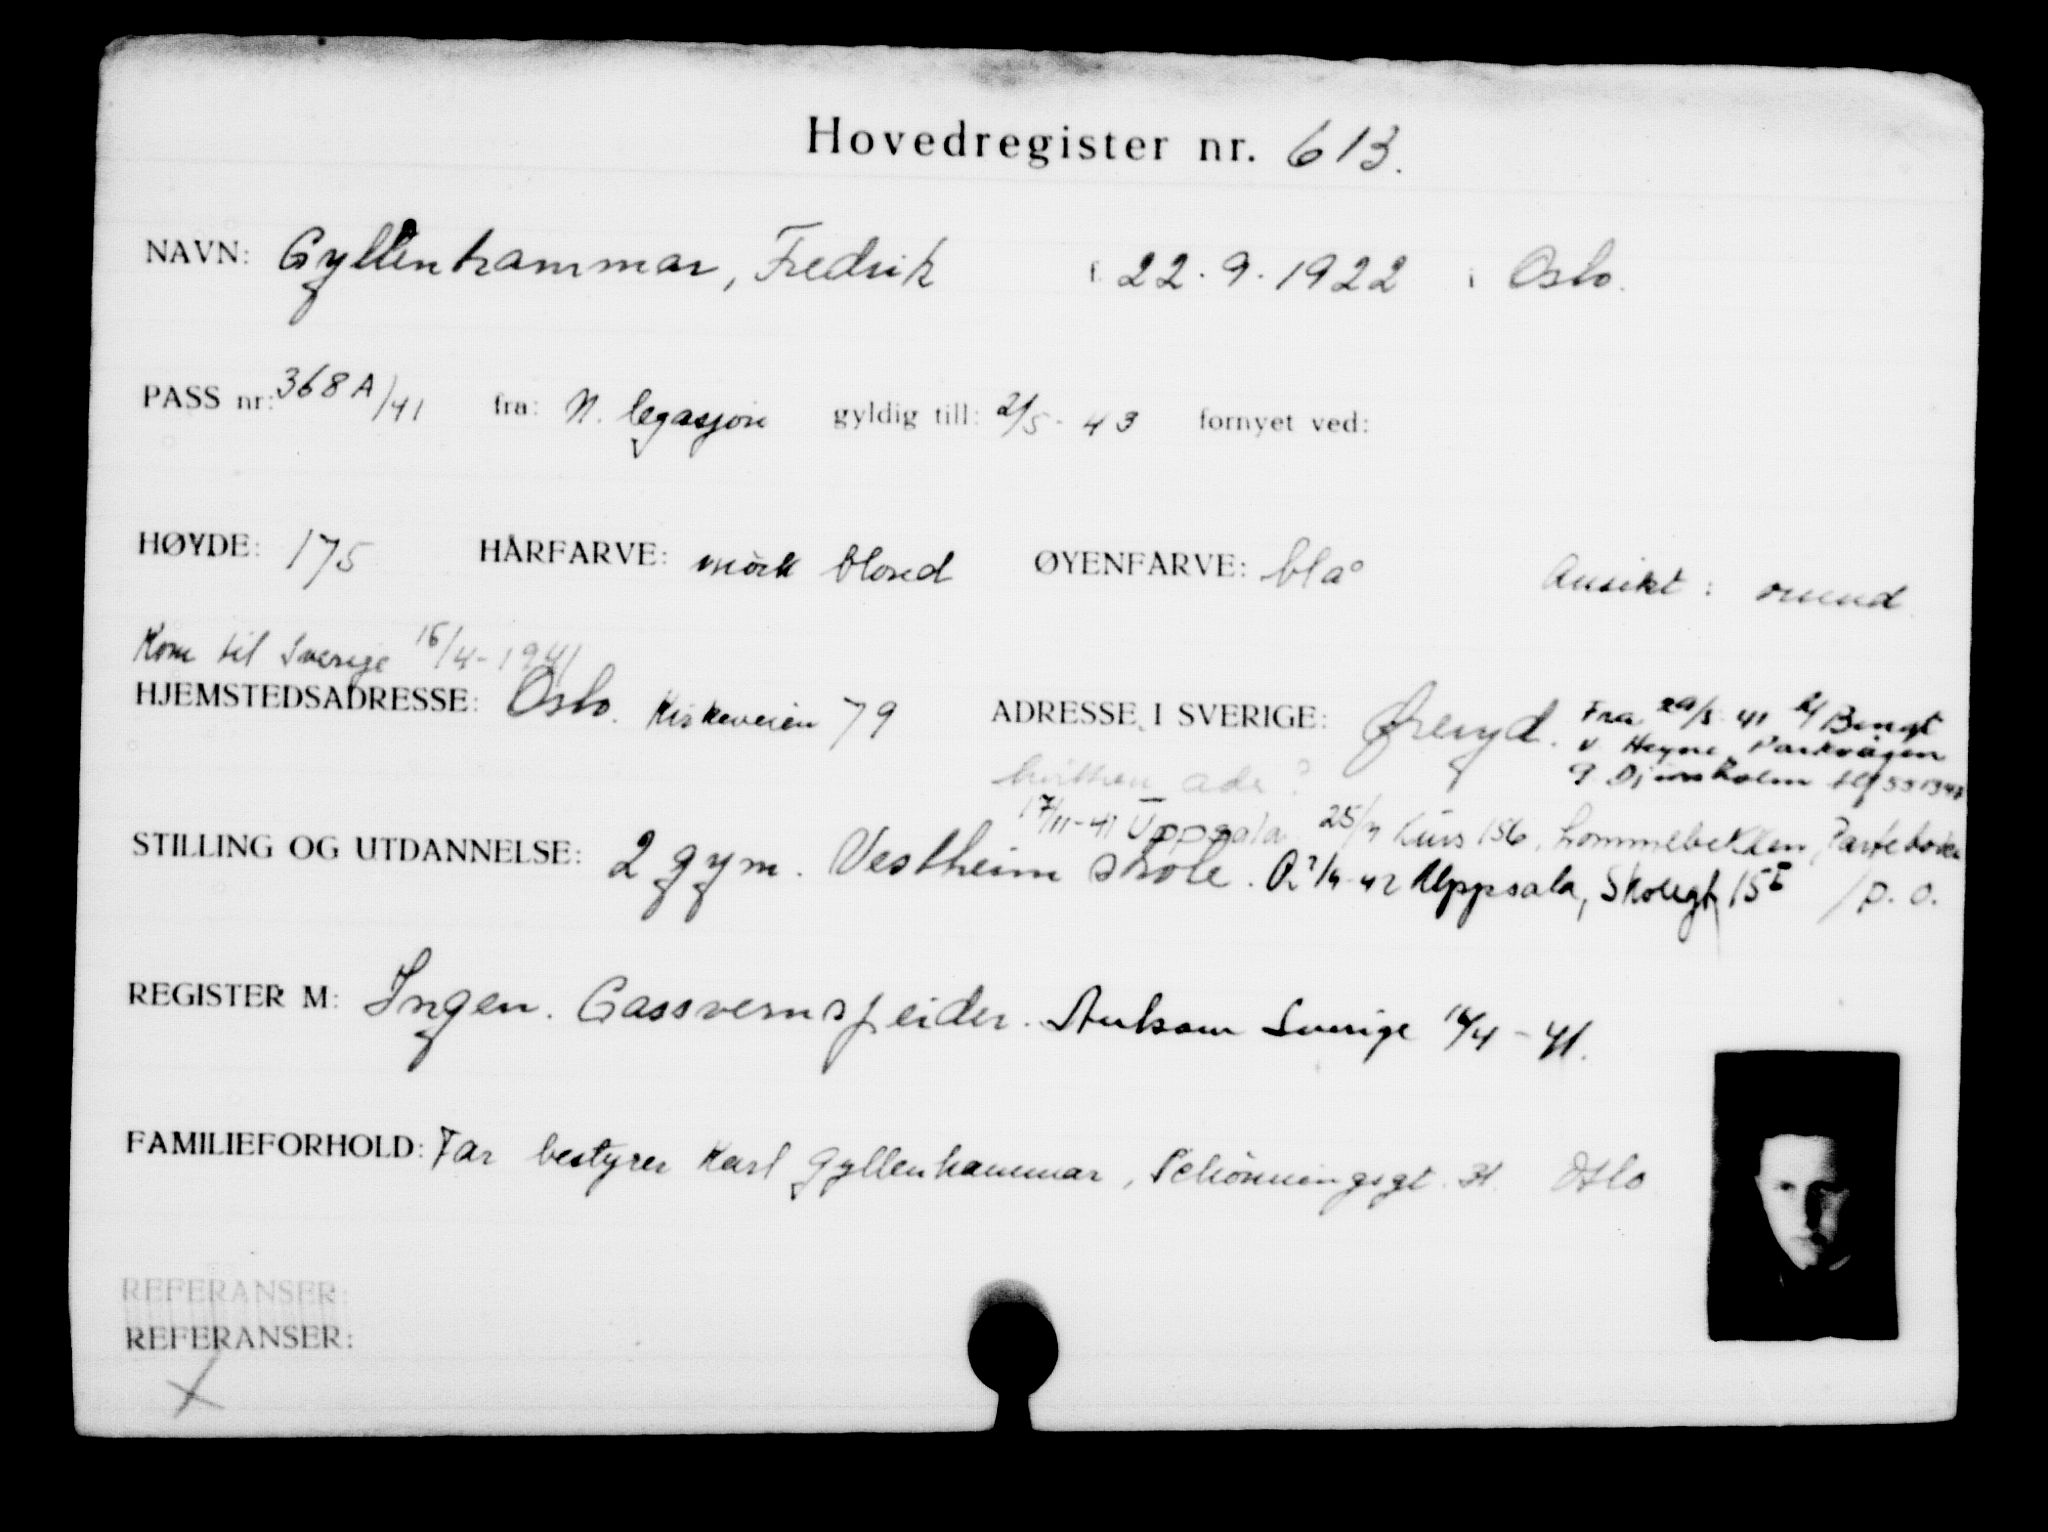 Hovedregister nr. 613.
NAVN: Gyllenhammar, Fredrik f. 22.9.1922 i Oslo.
PASS nr: 368 A/41 fra: N. legasjon gyldig till: 2/5-43 fornyet ved:
HØYDE: 175 HÅRFARVE: mörk blond ØYENFARVE: blå Ansikt: rund
Kom til Sverige 16/4-1941
HJEMSTEDSADRESSE: Oslo. Kirkeveien 79 ADRESSE I SVERIGE: Øreryd. Fra 29/5 41 Bengt
v. Heyne Parkvägen
9 Djursholm
adr?
17/11-41 Uppsala 25/4 Kurs 156,
STILLING OG UTDANNELSE: 2 gym. Vestheim skole. 7/4-42 Uppsala, Skolegt 15 I /p.o.
REGISTER M: Ingen. Gassvernspeider. Ankom Sverige 16/4-41.
FAMILIEFORHOLD: Far bestyrer Karl Gyllenhammar, Schönningsgt. 31 Oslo
REFERANSER:
REFERANSER: